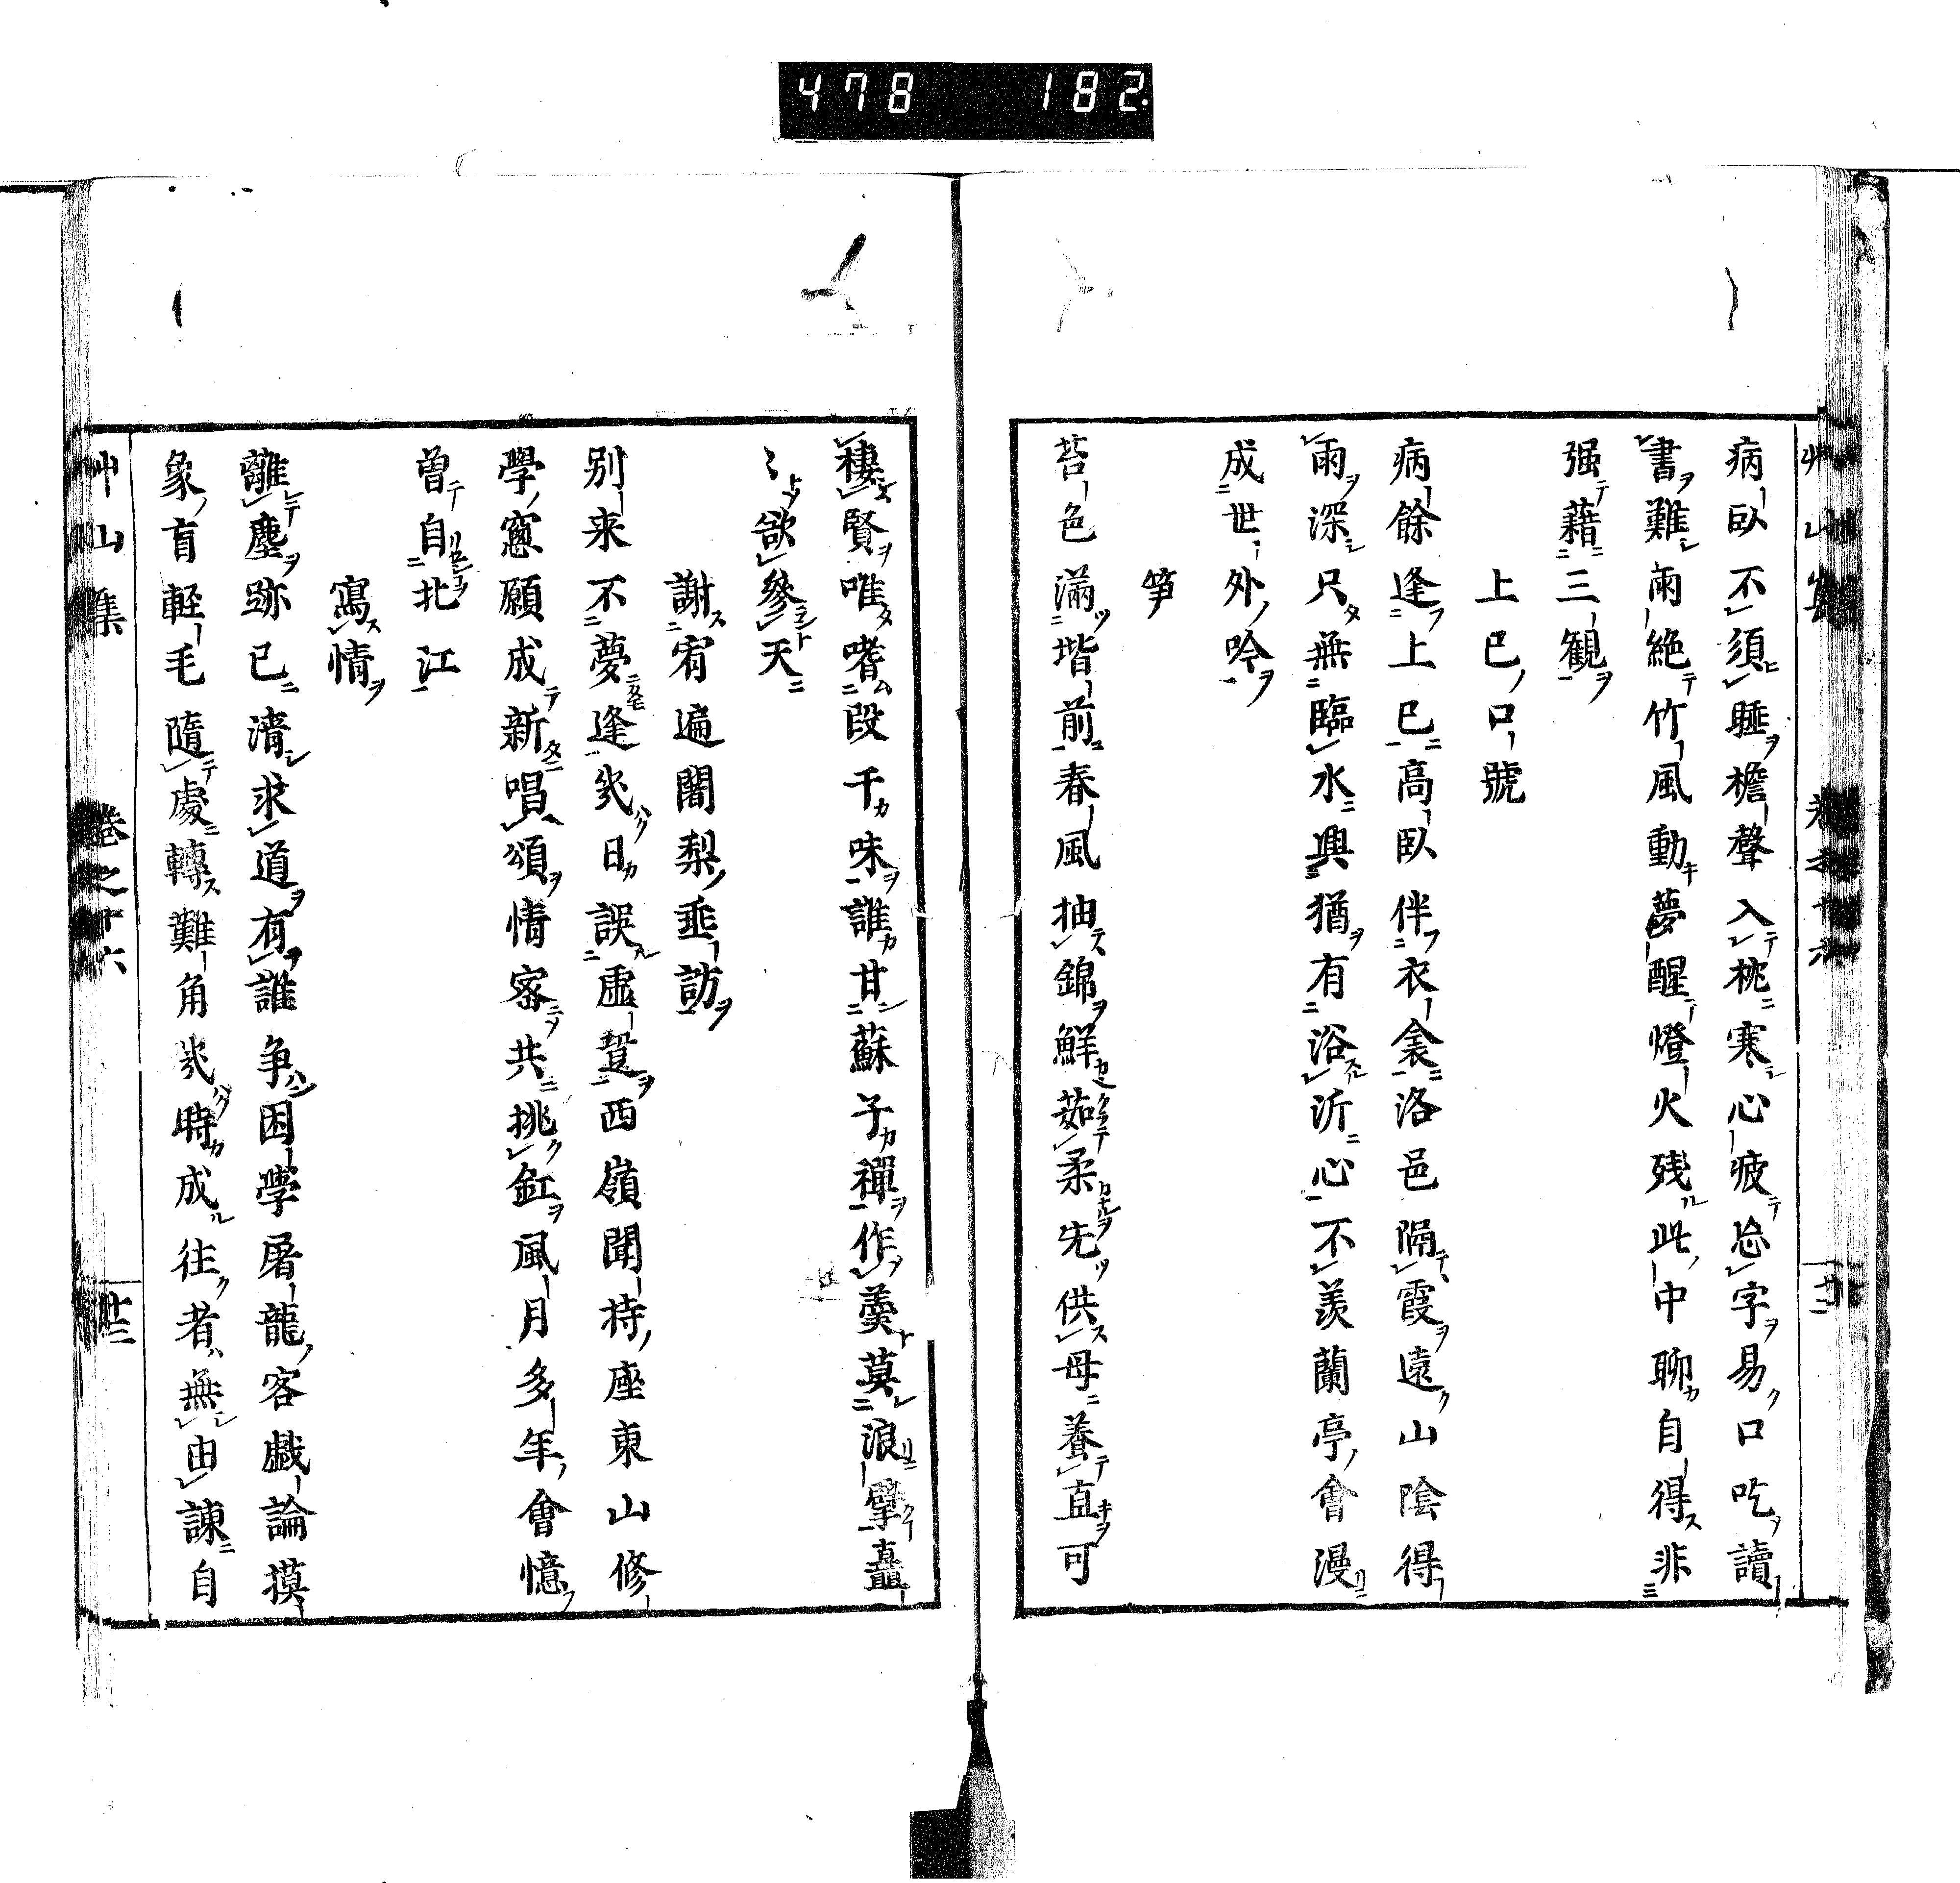 478 182
艸山集 卷之十六 廿二
病臥不須睡檐聲入枕寒心疲忘字易口吃讀
書難雨絶竹風動夢醒燈火残此中聊自得非
强藉三観
上巳口號
病餘逢上巳高臥伴衣衾洛邑隔霞遠山陰得
雨深只無臨水興猶有浴沂心不羨蘭亭會漫
成世外吟
笋
苔色滿堦前春風抽錦鮮茹柔先供母養直可
棲賢唯嗜段千味誰甘蘇子禪作羹莫浪擘矗
〻欲參天
謝宥遍闍梨垂訪
别来不夢逢幾日誤虚跫西嶺聞持座東山修
學窓願成新唄頌情密共挑釭風月多年會憶
曽自北江
寫情
離塵跡已清求道有誰争困學屠龍客戯論摸
象盲軽毛隨處轉難角幾時成往者無由諫自
艸山集 卷之十六 廿三